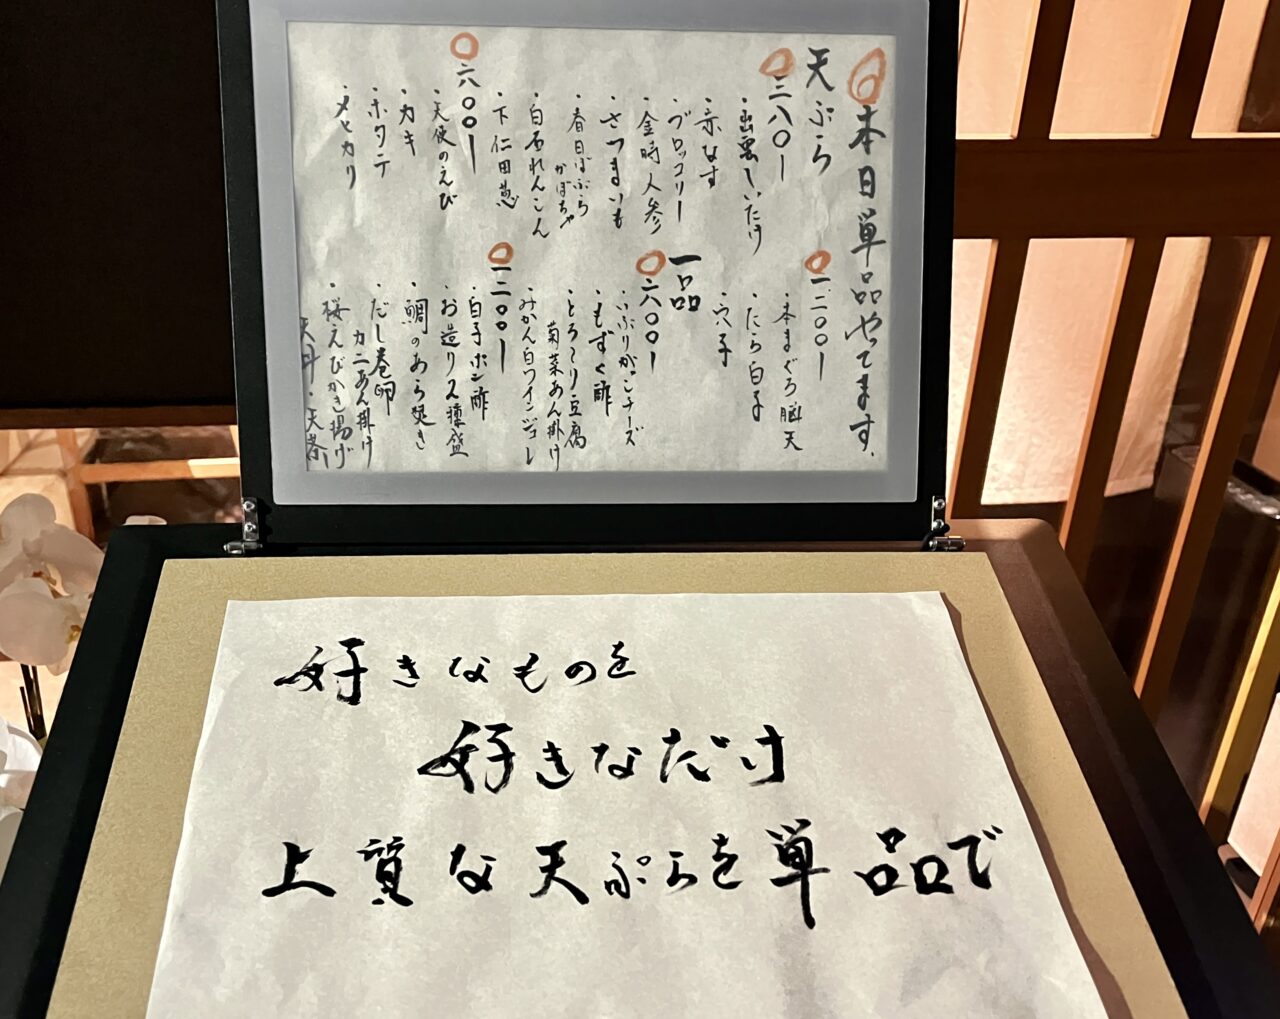 本日単品やってます。
天ぷら
三八〇ー
・出雲しいたけ
・赤なす
・ブロッコリー
・金時人参
・さつまいも
・春日ぼぶら
かぼちゃ
・白石れんこん
・下仁田葱
六〇〇ー
・天使のえび
・カキ
・ホタテ
・メヒカリ
一二〇〇ー
・本まぐろ脳天
・たら白子
・穴子
一品
六〇〇ー
・いぶりがっこチーズ
・もずく酢
・とろ〜り豆腐
菊菜あん掛け
・みかん白ワインジュレ
一二〇〇ー
・白子ポン酢
・お造り2種盛
・鯛のあら炊き
・だし巻卵
カニあん掛け
・桜えびかき揚げ
天丼・天茶
好きなものを
好きなだけ
上質な天ぷらを単品で